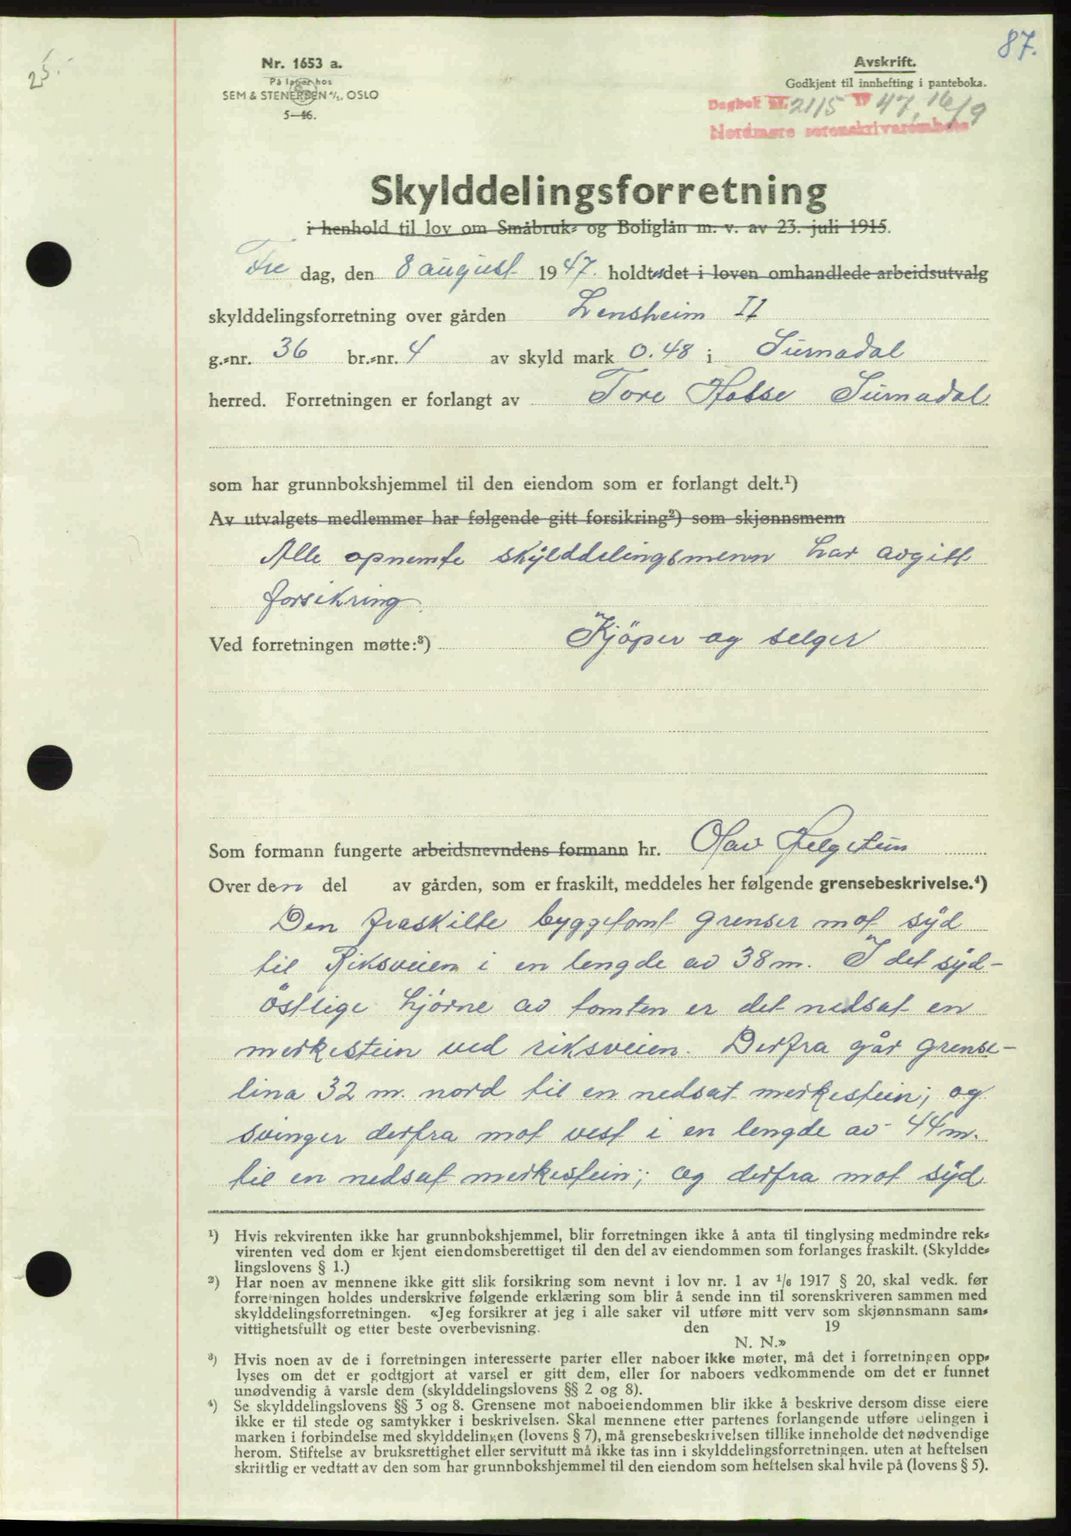 87.
25.-
Nr. 1653 a.
På lager hos
SEM & STENERSEN A/S, OSLO
5-46.
Avskrift.
Godkjent til innhefting i panteboka.
Dagbok nr. 2115 19 47, 16/9
Nordmøre sorenskriverembete
Skylddelingsforretning
i henhold til lov om Småbruk- og Boliglån m. v. av 23. juli 1915.
Fre dag, den 8 august 1947. holdt det i loven omhandlede arbeidsutvalg
skylddelingsforretning over gården Lensheim II
g.-nr. 36 br.-nr. 4 av skyld mark 0.48 i Surnadal
herred. Forretningen er forlangt av Tore Halse Surnadal
som har grunnbokshjemmel til den eiendom som er forlangt delt.¹)
Av utvalgets medlemmer har følgende gitt forsikring²) som skjønnsmenn
Alle opnemte skylddelingsmenn har avgitt
forsikring.
Ved forretningen møtte:³) Kjöper og selger
Som formann fungerte arbeidsnevndens formann hr. Olav Helgetun
Over den del av gården, som er fraskilt, meddeles her følgende grensebeskrivelse.⁴)
Den fraskilte byggetomt grenser mot syd
til Riksveien i en lengde av 38 m. I det syd-
östlige hjørne av tomten er det nedsat en
merkestein ved riksveien. Derfra går grense-
lina 32 m. nord til en nedsat merkestein; og
svinger derfra mot vest i en lengde av 44 m.
til en nedsat merkestein; og derfra mot syd
¹) Hvis rekvirenten ikke har grunnbokshjemmel, blir forretningen ikke å anta til tinglysing medmindre rek-
virenten ved dom er kjent eiendomsberettiget til den del av eiendommen som forlanges fraskilt. (Skyldde-
lingslovens § 1.)
²) Har noen av mennene ikke gitt slik forsikring som nevnt i lov nr. 1 av 1/6 1917 § 20, skal vedk. før
forretningen holdes underskrive følgende erklæring som blir å sende inn til sorenskriveren sammen med
skylddelingsforretningen. «Jeg forsikrer at jeg i alle saker vil utføre mitt verv som skjønnsmann sam-
vittighetsfullt og etter beste overbevisning. den 19
N. N.»
³) Hvis noen av de i forretningen interesserte parter eller naboer ikke møter, må det i forretningen opp-
lyses om det er godtgjort at varsel er gitt dem, eller for naboers vedkommende om det er funnet
unødvendig å varsle dem (skylddelingslovens §§ 2 og 8).
⁴) Se skylddelingslovens §§ 3 og 8. Grensene mot naboeiendommen blir ikke å beskrive dersom disse eiere
ikke er til stede og samtykker i beskrivelsen. Skal mennene etter partenes forlangende utføre delingen i
marken i forbindelse med skylddelingen (lovens § 7), må grensebeskrivelsen tillike inneholde det nødvendige
herom. Stiftelse av bruksrettighet eller servitutt må ikke tas inn i skylddelingsforretningen. uten at heftelsen
skriftlig er vedtatt av den som har grunnbokshjemmel til den eiendom som heftelsen skal hvile på (lovens § 5).